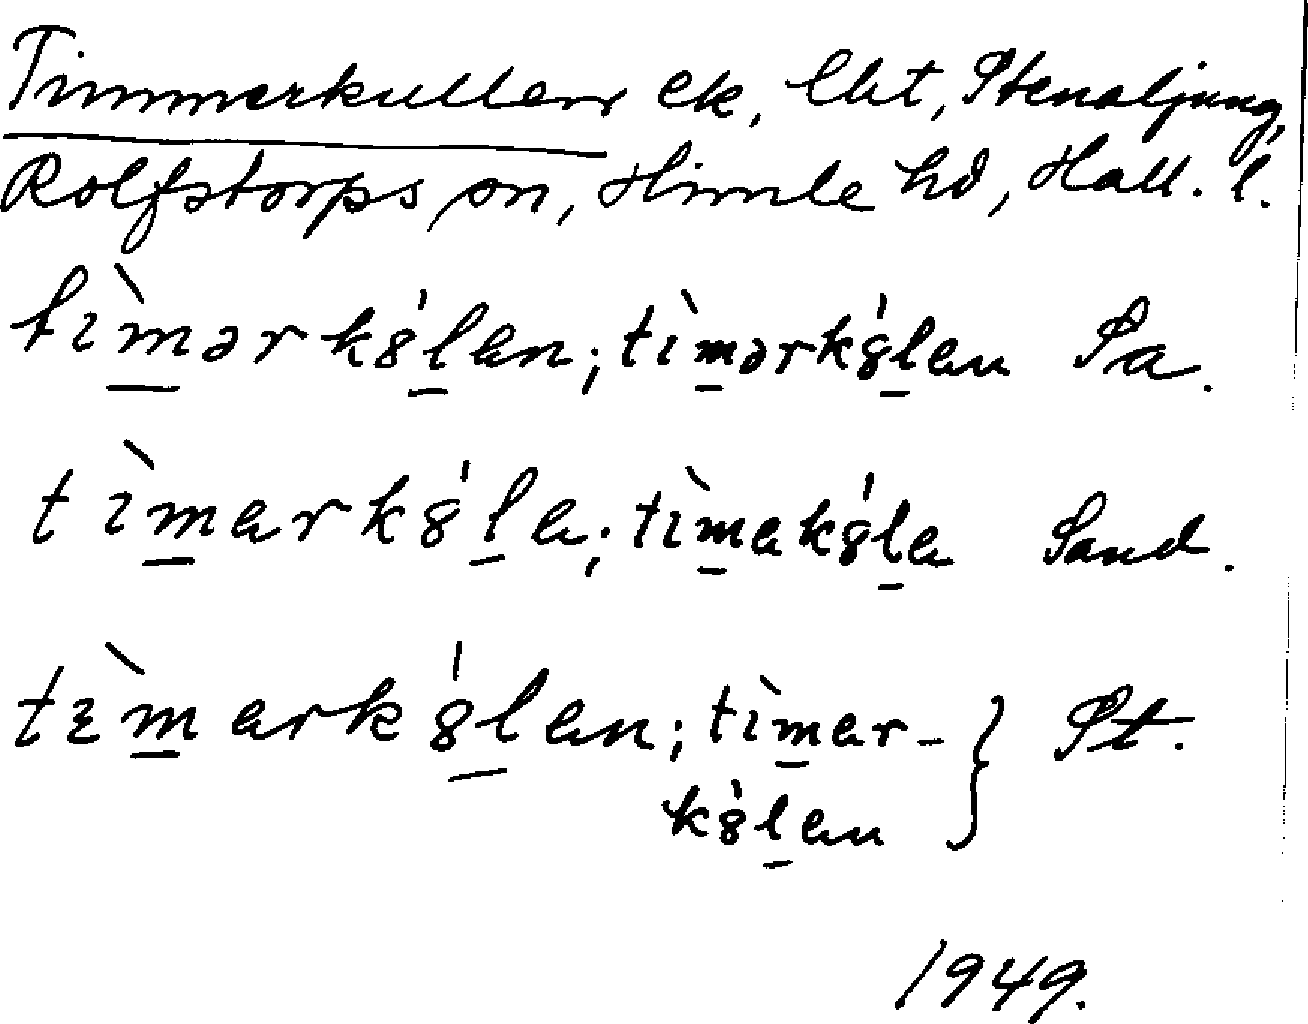 Timmerkullen ek, lht, Stenaljung,
Rolfstorps sn, Himle hd, Hall. l.
tìmərk8́lan; tìmərk8́lan Sa.
tìmark8́la; tìmak8́la Sand.
tìmark8́lan; tìmar- } St.
k8́lan
1949.